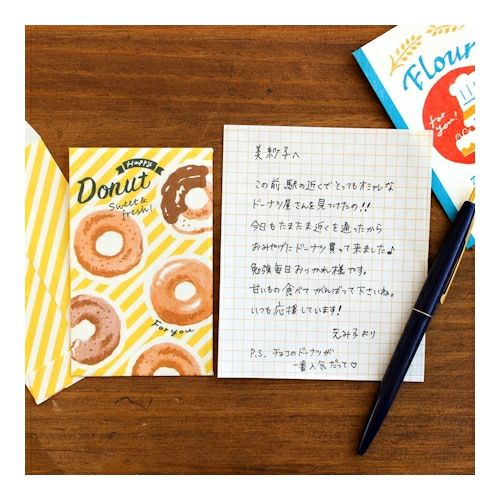 Happy
Donut
Sweet &
fresh!
For you
美紗子へ
この前駅の近くでとってもオシャレな
ドーナツ屋さんを見つけたの!!
今日もたまたま近くを通ったから
おみやげにドーナツ買って来ました♪
勉強毎日おつかれ様です。
甘いもの食べてがんばって下さいね。
いつも応援しています!
えみ子より
P.S. チョコのドーナツが
一番人気だって♡
Flour
for you!